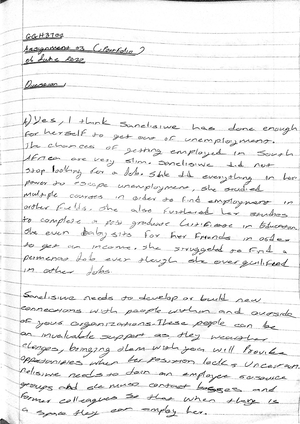 GGH3708
Assignment 03 (Portfolio)
06 June 2020
Question 1
A) Yes, I think Sanelisiwe has done enough
for herself to get out of unemployment.
The chances of getting employed in South
Africa are very slim. Sanelisiwe did not
stop looking for a Job. She did everything in her
power to escape unemployment. She studied
multiple courses in order to find employment in
other fields. She also furthered her studies
to complete a post graduate Certificate in Education
She even baby sits for her friends in order
to get an income. She struggled to find a
permenent Job even though she over qualified
in other Jobs
Sanelisiwe needs to develop or build new
connections with people within and outside
of your organizations. These people can be
an invaluable support as they weather
changes, bringing them with you will provide
oppotunities when her position lacks
needs to Join an employee
groups and contact bosses and
former colleagues so that when there is
a space they can employ her.